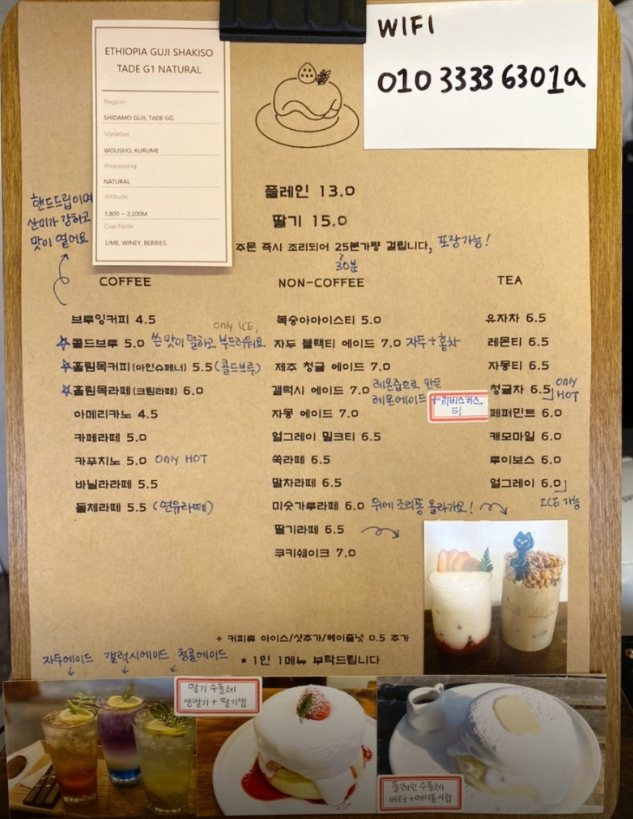 WIFI
010 3333 6301a
ETHIOPIA GUJI SHAKISO
TADE G1 NATURAL
Region
SHIDAMO GUJI, TADE GG
Varieties
WOLISHO, KURUME
Processing
NATURAL
Altitude
1,800 – 2,200M
Cup Note
LIME, WINEY, BERRIES
핸드드립이며
산미가 강하고
맛이 옅어요
플레인 13.0
딸기 15.0
주문 즉시 조리되어 25분가량 걸립니다, 포장가능!
30분
COFFEE
브루잉커피 4.5
only ICE,
☆콜드브루 5.0 쓴맛이 덜하고 부드러워요
☆홀림목커피(아인슈페너) 5.5 (콜드브루)
☆홀림목라떼(크림라떼) 6.0
아메리카노 4.5
카페라떼 5.0
카푸치노 5.0 only HOT
바닐라라떼 5.5
돌체라떼 5.5 (연유라떼)
NON-COFFEE
복숭아아이스티 5.0
자두 블랙티 에이드 7.0 자두+홍차
제주 청귤 에이드 7.0
갤럭시 에이드 7.0 레몬즙으로 만든
레몬에이드 +히비스커스
티
자몽 에이드 7.0
얼그레이 밀크티 6.5
쑥라떼 6.5
말차라떼 6.5
미숫가루라떼 6.0 위에 조리퐁 올라가요!
딸기라떼 6.5
쿠키쉐이크 7.0
TEA
유자차 6.5
레몬티 6.5
자몽티 6.5
청귤차 6.5 only
HOT
페퍼민트 6.0
캐모마일 6.0
루이보스 6.0
얼그레이 6.0
ICE 가능
+ 커피류 아이스/샷추가/헤이즐넛 0.5 추가
★ 1인 1메뉴 부탁드립니다
자두에이드 갤럭시에이드 청귤에이드
딸기 수플레
생딸기+딸기잼
플레인 수플레
버터+메이플시럽